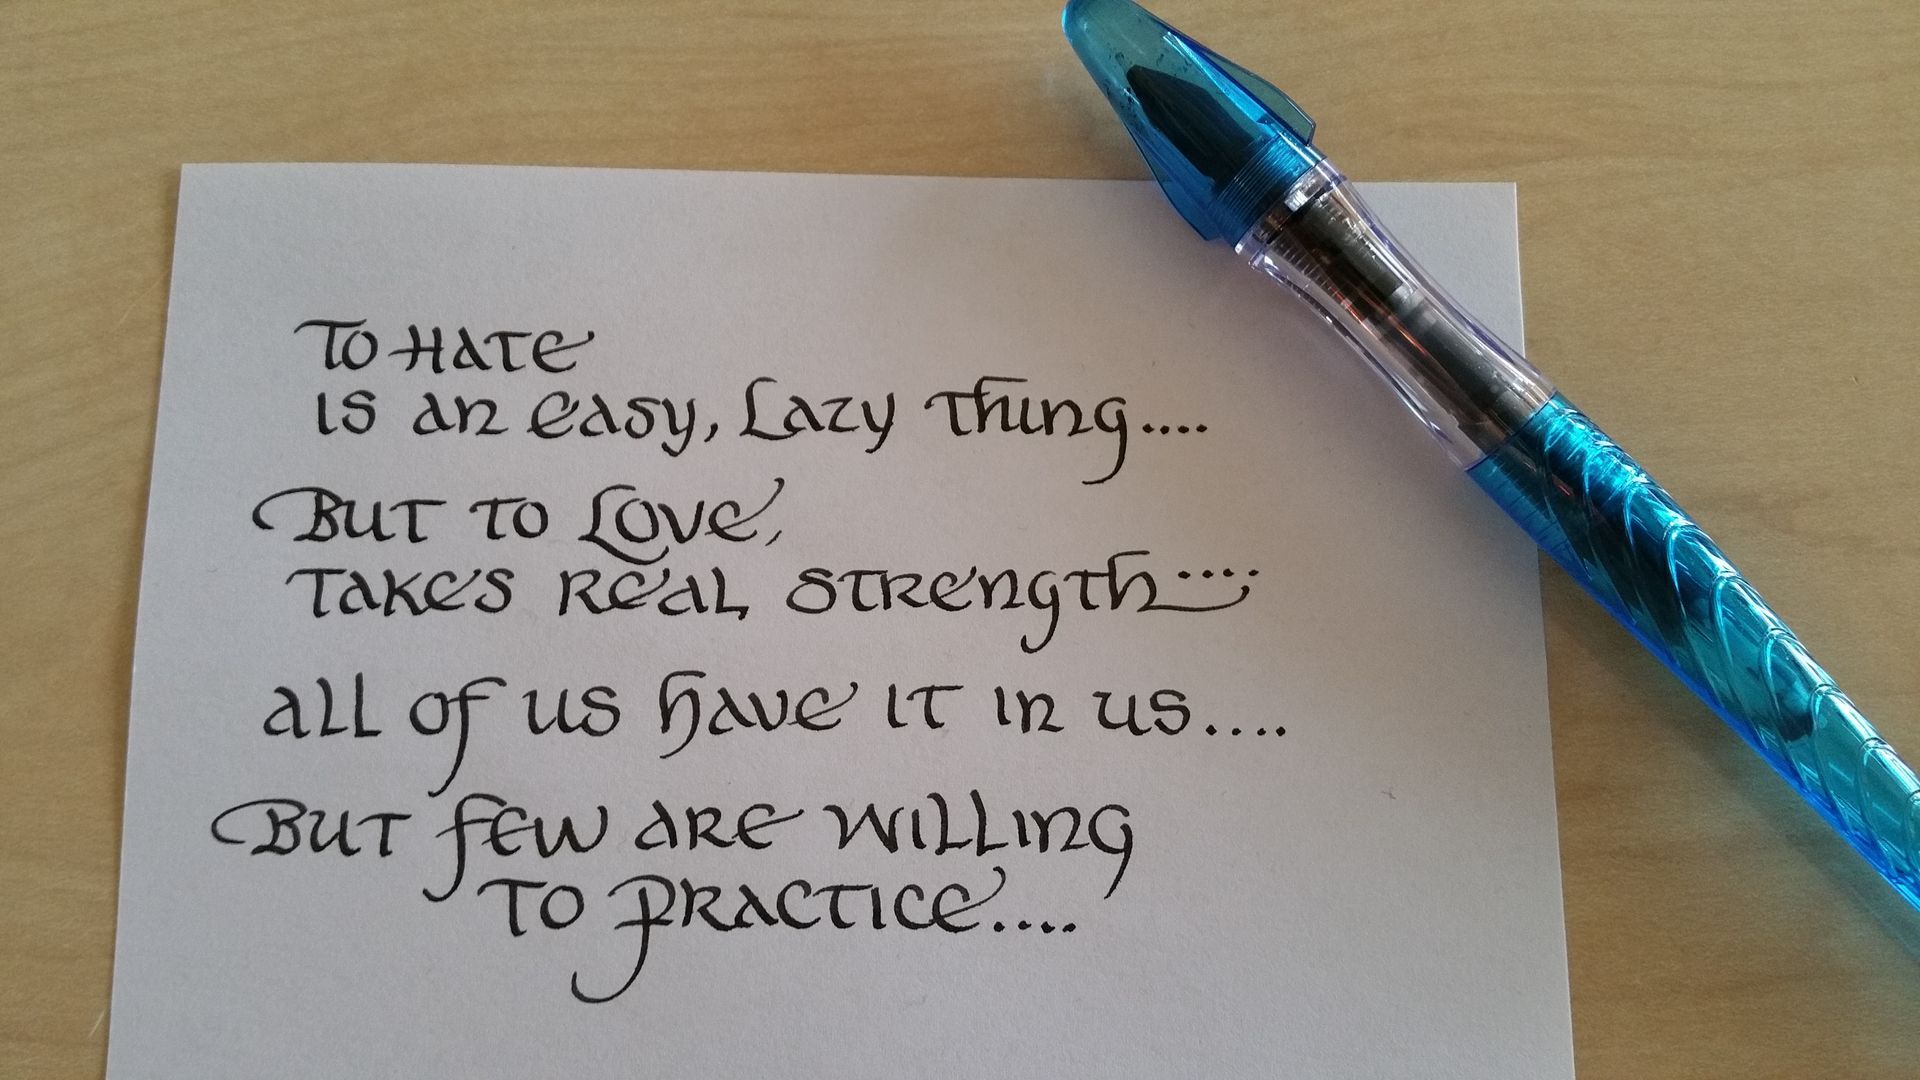 To Hate
is an easy, Lazy Thing....
But to Love,
takes real strength....
all of us have it in us....
But few are willing
to practice....